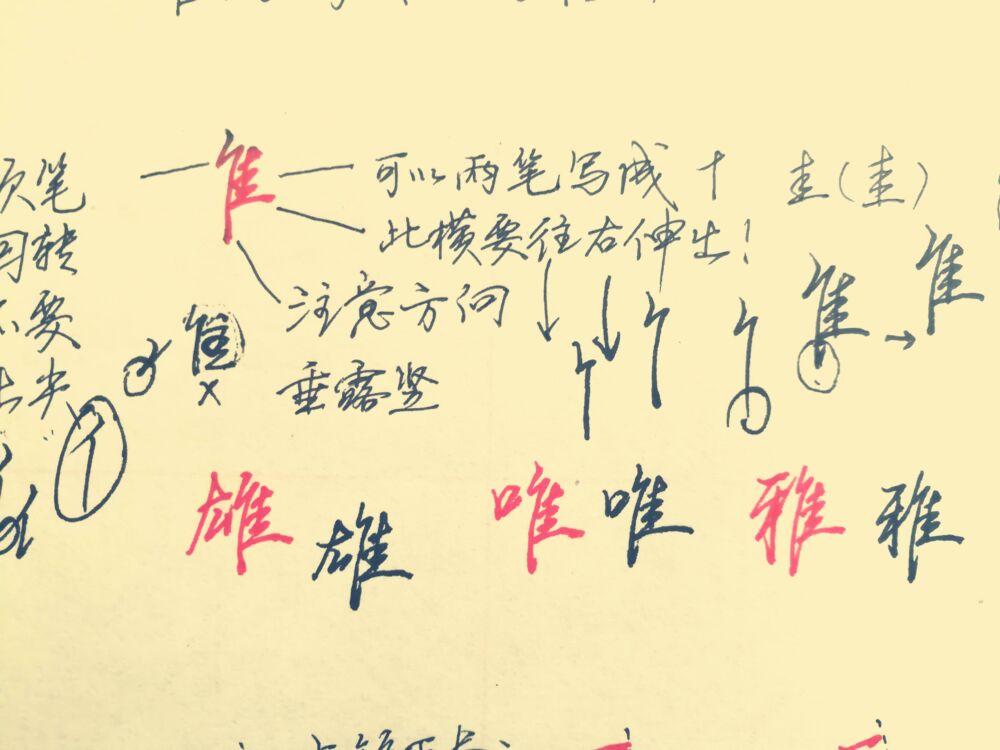 笔 隹 可以两笔写成 十 圭(圭)
回转 此横要往右伸出!
要 隹 注意方向 隹 → 隹
出尖 × 垂露竖
雄 雄 唯 唯 雅 雅